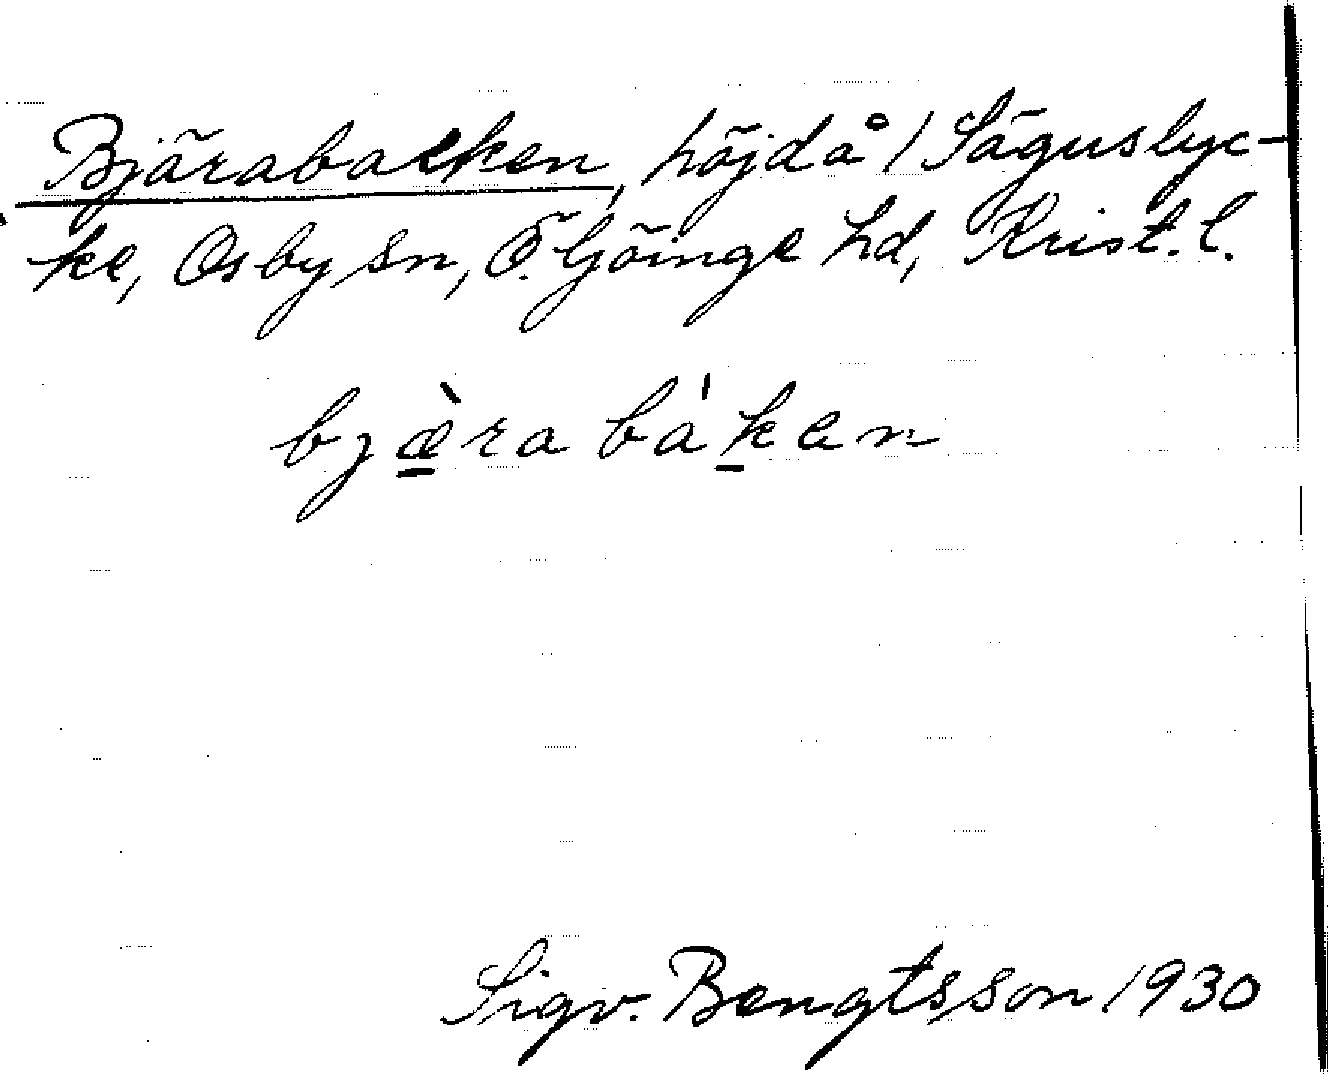 Bjärabacken, höjd å 1 Säguslyc-
ke, Osby sn, Ö. Göinge hd, Krist. l.
bjæ̀ra báken
Sigv. Bengtsson 1930